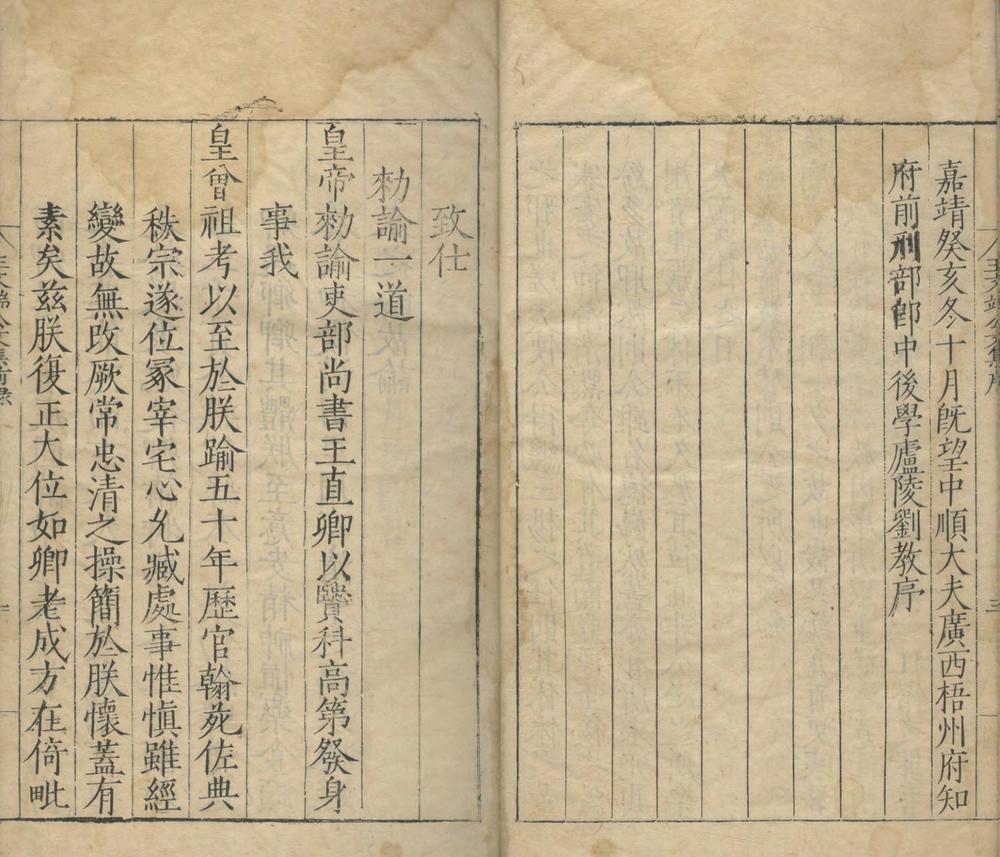 嘉靖癸亥冬十月既望中順大夫廣西梧州府知
府前刑部郎中後學廬陵劉教序
致仕
勑諭一道
皇帝勑諭吏部尚書王直卿以賢科高第發身
事我
皇曾祖考以至於朕踰五十年歷官翰苑佐典
秩宗遂位冢宰宅心允臧處事惟慎雖經
變故無改厥常忠清之操簡於朕懷蓋有
素矣茲朕復正大位如卿老成方在倚毗